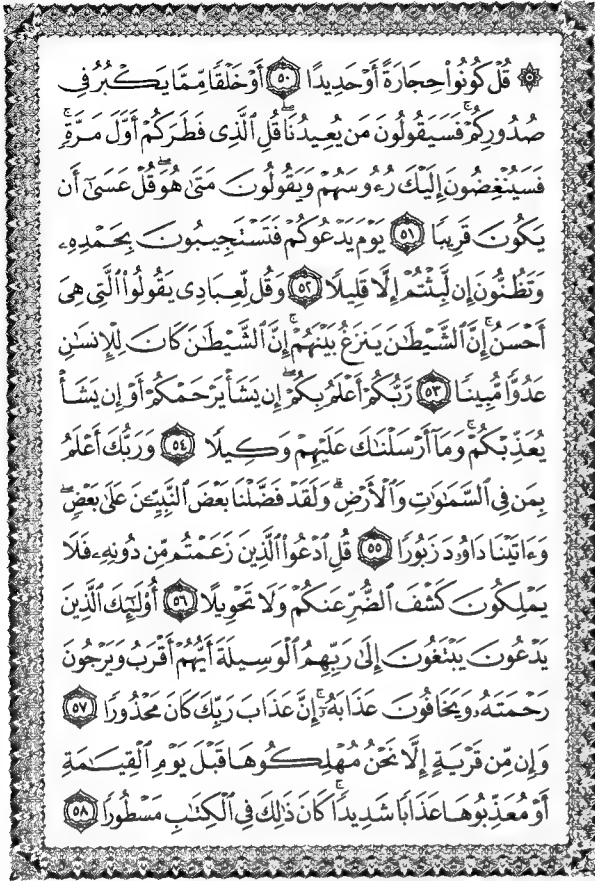 ۞ قُلْ كُونُوا۟ حِجَارَةً أَوْ حَدِيدًا ٥٠ أَوْ خَلْقًا مِّمَّا يَكْبُرُ فِى
صُدُورِكُمْ ۚ فَسَيَقُولُونَ مَن يُعِيدُنَا ۖ قُلِ ٱلَّذِى فَطَرَكُمْ أَوَّلَ مَرَّةٍ ۚ
فَسَيُنْغِضُونَ إِلَيْكَ رُءُوسَهُمْ وَيَقُولُونَ مَتَىٰ هُوَ ۖ قُلْ عَسَىٰٓ أَن
يَكُونَ قَرِيبًا ٥١ يَوْمَ يَدْعُوكُمْ فَتَسْتَجِيبُونَ بِحَمْدِهِۦ
وَتَظُنُّونَ إِن لَّبِثْتُمْ إِلَّا قَلِيلًا ٥٢ وَقُل لِّعِبَادِى يَقُولُوا۟ ٱلَّتِى هِىَ
أَحْسَنُ ۚ إِنَّ ٱلشَّيْطَـٰنَ يَنزَغُ بَيْنَهُمْ ۚ إِنَّ ٱلشَّيْطَـٰنَ كَانَ لِلْإِنسَـٰنِ
عَدُوًّا مُّبِينًا ٥٣ رَّبُّكُمْ أَعْلَمُ بِكُمْ ۖ إِن يَشَأْ يَرْحَمْكُمْ أَوْ إِن يَشَأْ
يُعَذِّبْكُمْ ۚ وَمَآ أَرْسَلْنَـٰكَ عَلَيْهِمْ وَكِيلًا ٥٤ وَرَبُّكَ أَعْلَمُ
بِمَن فِى ٱلسَّمَـٰوَٰتِ وَٱلْأَرْضِ ۗ وَلَقَدْ فَضَّلْنَا بَعْضَ ٱلنَّبِيِّـۧنَ عَلَىٰ بَعْضٍ ۖ
وَءَاتَيْنَا دَاوُۥدَ زَبُورًا ٥٥ قُلِ ٱدْعُوا۟ ٱلَّذِينَ زَعَمْتُم مِّن دُونِهِۦ فَلَا
يَمْلِكُونَ كَشْفَ ٱلضُّرِّ عَنكُمْ وَلَا تَحْوِيلًا ٥٦ أُو۟لَـٰٓئِكَ ٱلَّذِينَ
يَدْعُونَ يَبْتَغُونَ إِلَىٰ رَبِّهِمُ ٱلْوَسِيلَةَ أَيُّهُمْ أَقْرَبُ وَيَرْجُونَ
رَحْمَتَهُۥ وَيَخَافُونَ عَذَابَهُۥٓ ۚ إِنَّ عَذَابَ رَبِّكَ كَانَ مَحْذُورًا ٥٧
وَإِن مِّن قَرْيَةٍ إِلَّا نَحْنُ مُهْلِكُوهَا قَبْلَ يَوْمِ ٱلْقِيَـٰمَةِ
أَوْ مُعَذِّبُوهَا عَذَابًا شَدِيدًا ۚ كَانَ ذَٰلِكَ فِى ٱلْكِتَـٰبِ مَسْطُورًا ٥٨